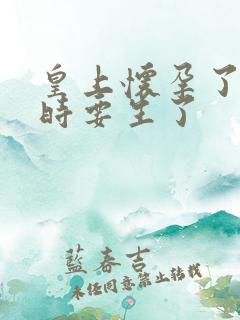 皇上懷孕了
時要生了
藍春吉
未經同意禁止轉載